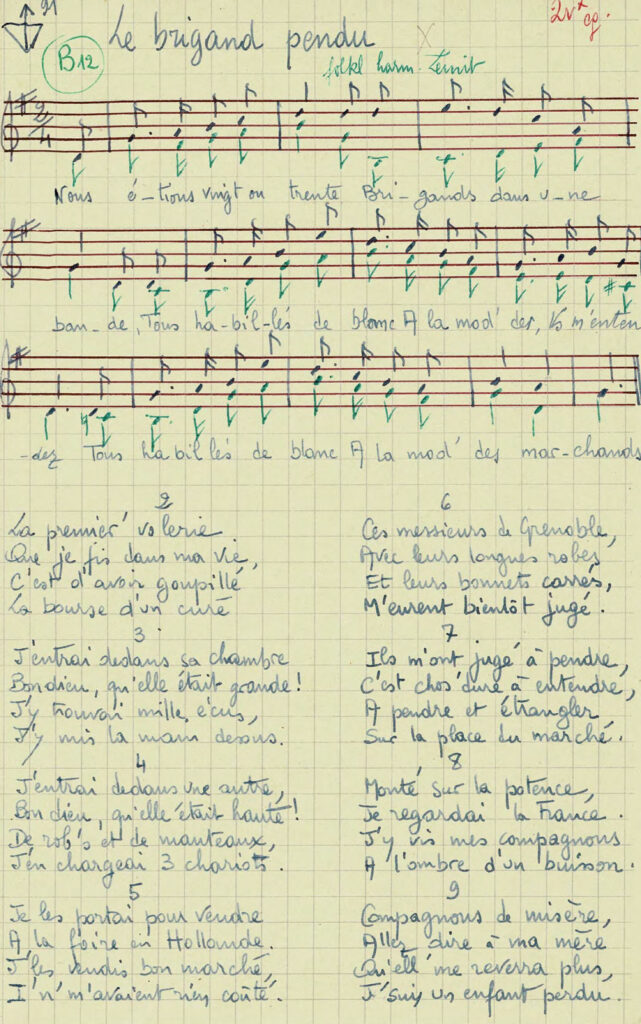 91
Le brigand pendu
2v
B12
folkl harm
2
4
Nous é-tions vingt ou trente Bri-gands dans u-ne
ban-de, Tous ha-bil-lés de blanc A la mod' des, Vs m'enten
-dez Tous habillés de blanc A la mod' des mar-chands
2
La premier' volerie
Que je fis dans ma vie,
C'est d'avoir goupillé
La bourse d'un curé
3
J'entrai dedans sa chambre
Bon dieu, qu'elle était grande !
J'y trouvai mille écus,
J'y mis la main dessus.
4
J'entrai dedans une autre,
Bon dieu, qu'elle était haute !
De rob's et de manteaux,
J'en chargeai 3 chariots.
5
Je les portai pour vendre
A la foire en Hollande.
J'les vendis bon marché,
I'n'm'avaient rien coûté.
6
Ces messieurs de Grenoble,
Avec leurs longues robes
Et leurs bonnets carrés,
M'eurent bientôt jugé.
7
Ils m'ont jugé à pendre,
C'est chos' dure à entendre,
A pendre et étrangler
Sur la place du marché.
8
Monté sur la potence,
Je regardai la France.
J'y vis mes compagnons
A l'ombre d'un buisson.
9
Compagnons de misère,
Allez dire à ma mère
Qu'ell' me reverra plus,
J'suis un enfant perdu.